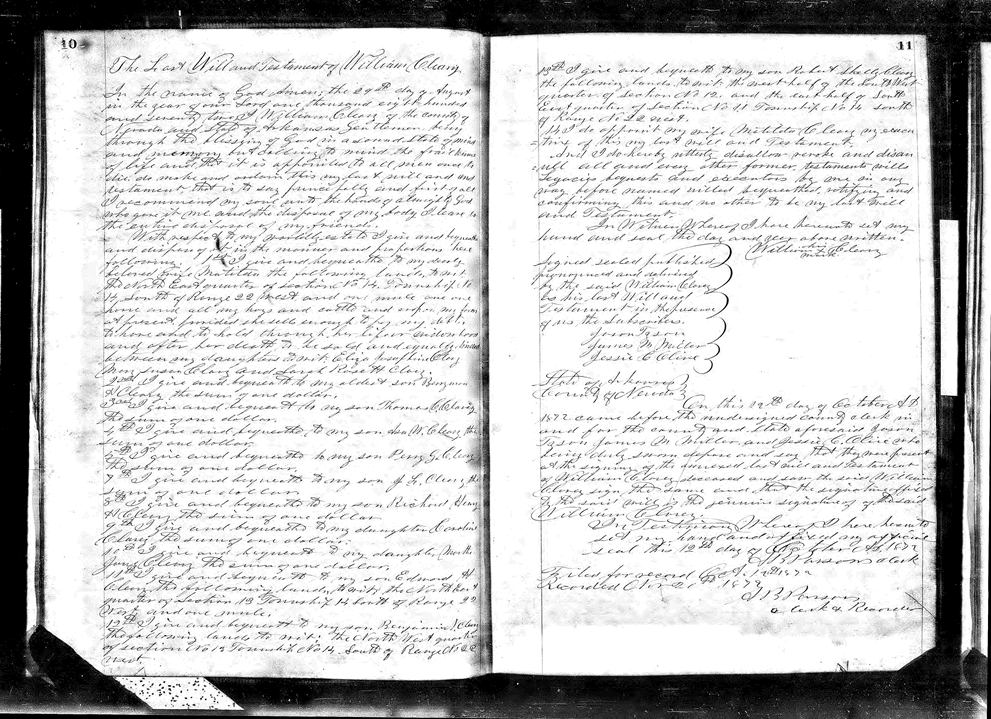 10
The Last Will and Testament of William Cleary
In the name of God Amen, the 29th day of August
in the year of our Lord one thousand eight hundred
and seventy two, I William Cleary of the county of
Nevada and State of Arkansas Gentleman being
through the blessing of God in a sound state of mind
and memory but calling to mind the frail tenure
of life and that it is appointed to all men once to
die do make and ordain this my last will and
testament, that is to say principally and first of all
I recommend my soul unto the hands of almighty God
who gave it me and the disposal of my body I leave to
the entire disposal of my friends.
With respect to my worldly estate I give and bequeath
and dispose of it in the manner and proportions here
following. 1st I give and bequeath to my dearly
beloved wife Matilda the following lands, to wit,
the North East quarter of section No 14, Township No
14 South of Range 22 West and one mule one
horse and all my hogs and cattle and crop on my farm
at present provided she sells enough to pay my debts
to have and to hold through her life or widowhood
and after her death to be sold and equally divided
between my daughters to wit: Eliza Josephine Cleary
Mary Susan Cleary and Sarah Rosett Cleary.
2nd I give and bequeath to my oldest son Benjamin
H Cleary the sum of one dollar.
3rd I give and bequeath to my son Thomas C. Cleary
the sum of one dollar.
I give and bequeath to my son W. Cleary the
sum of one dollar.
I give and bequeath to my son Perry G. Cleary
the sum of one dollar.
7th I give and bequeath to my son J. L. Cleary the
sum of one dollar.
8th I give and bequeath to my son Richard Henry
H Cleary the sum of one dollar.
9th I give and bequeath to my daughter Caroline
Cleary the sum of one dollar.
10th I give and bequeath to my daughter Martha
Jane Cleary the sum of one dollar.
11th I give and bequeath to my son Edward H
Cleary the following lands, to wit, the North East
quarter of Section 13 Township 14 South of Range 22
West and one mule.
12th I give and bequeath to my son Benjamin Cleary
the following lands to wit: the North West quarter
of section No 13 Township No 14 South of Range No 22
West.
11
13th I give and bequeath to my son Robert Cleary
the following lands to wit the west half of the South West
quarter of Section No 12 and the east half of South
East quarter of Section No 11 Township No 14 South
of Range No 22 west.
14 I do appoint my wife Matilda C Cleary my execu
tive of this my last will and Testament.
And I do hereby utterly disallow revoke and disan
ull all and every other former testaments wills
legacies bequests and executors by me in any
way before named willed bequeathed, ratifying and
confirming this and no other to be my last will
and Testament.
In Witness Whereof I have hereunto set my
hand and seal the day and year above written.
William his mark Cleary
Signed sealed published
pronounced and delivered
by the said William Cleary
as his last Will and
Testament in the presence
of us the Subscribers.
Jason Tyson
James M. Miller
Jessie C Cline
State of Arkansas
County of Nevada
On this 12th day of October A.D.
1872 came before the undersigned county clerk in
and for the county and State aforesaid Jason
Tyson James M. Miller, and Jessie C. Cline who
being duly sworn depose and say that they were present
at the signing of the annexed last will and Testament
of William Cleary deceased and saw the said William
Cleary sign the same and that the signature affixed
to the said will is the genuine signature of the said
William Cleary.
In Testimony Whereof I have hereunto
set my hand and affixed my official
seal this 12th day of October A.D. 1872
J B Parsons clerk
Filed for record Oct. 12th 1872
Recorded Nov 2 1872
J B Parsons
Clerk & Recorder